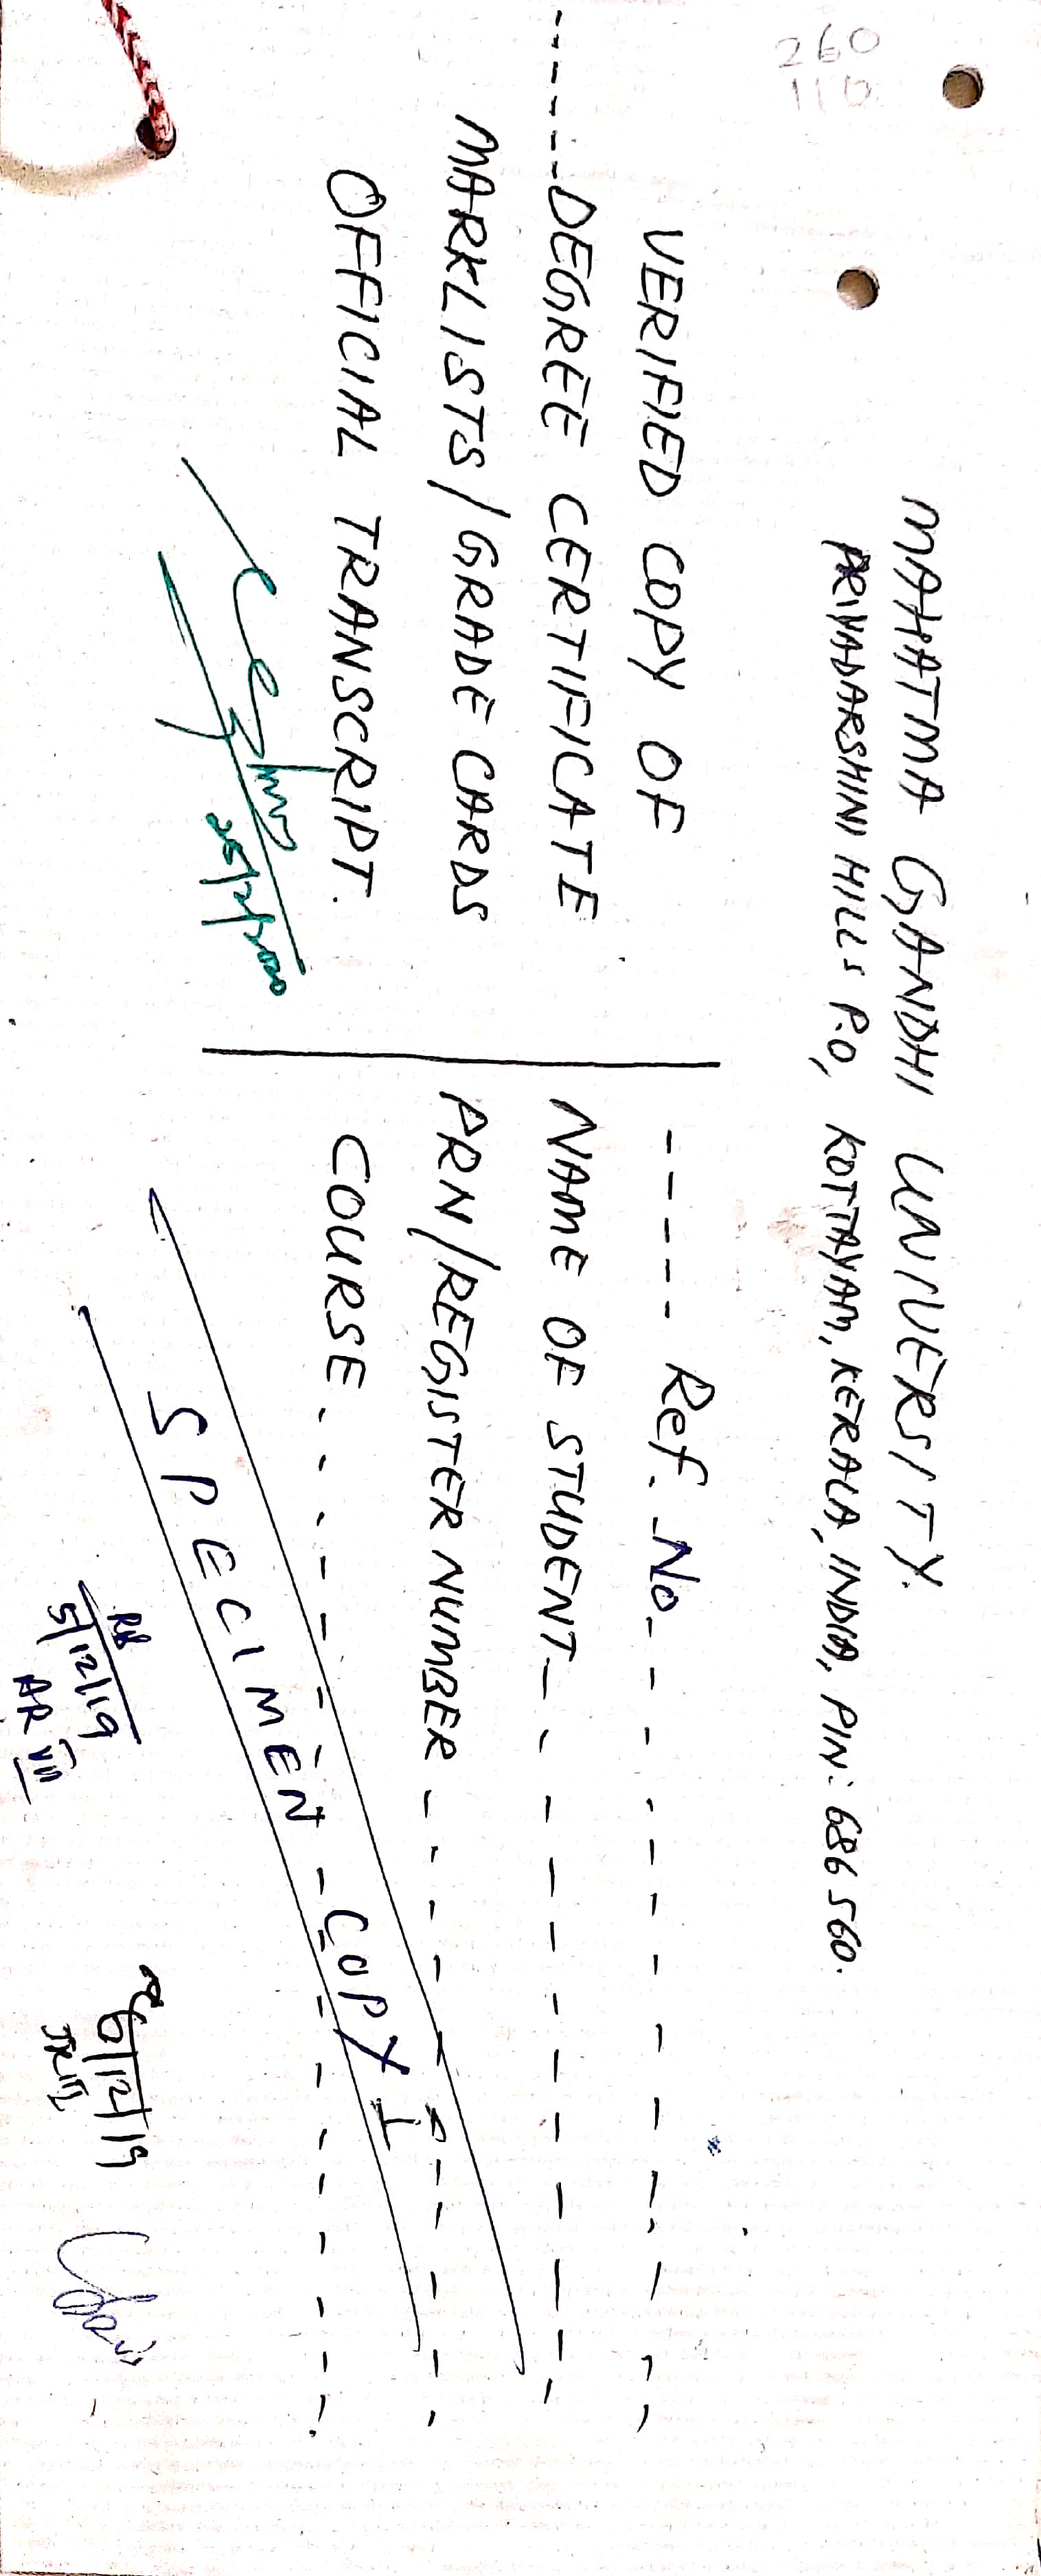 260
110
MAHATMA GANDHI UNIVERSITY.
PRIYADARSHINI HILLS P.O, KOTTAYAM, KERALA, INDIA, PIN: 686 560.
VERIFIED COPY OF
-----DEGREE CERTIFICATE
MARKLISTS/GRADE CARDS
OFFICIAL TRANSCRIPT.
---- Ref. No-----------
NAME OF STUDENT-----------
PRN/REGISTER NUMBER -----------
COURSE --------------
SPECIMEN COPY I
5/12/19
AR VII
6/12/19